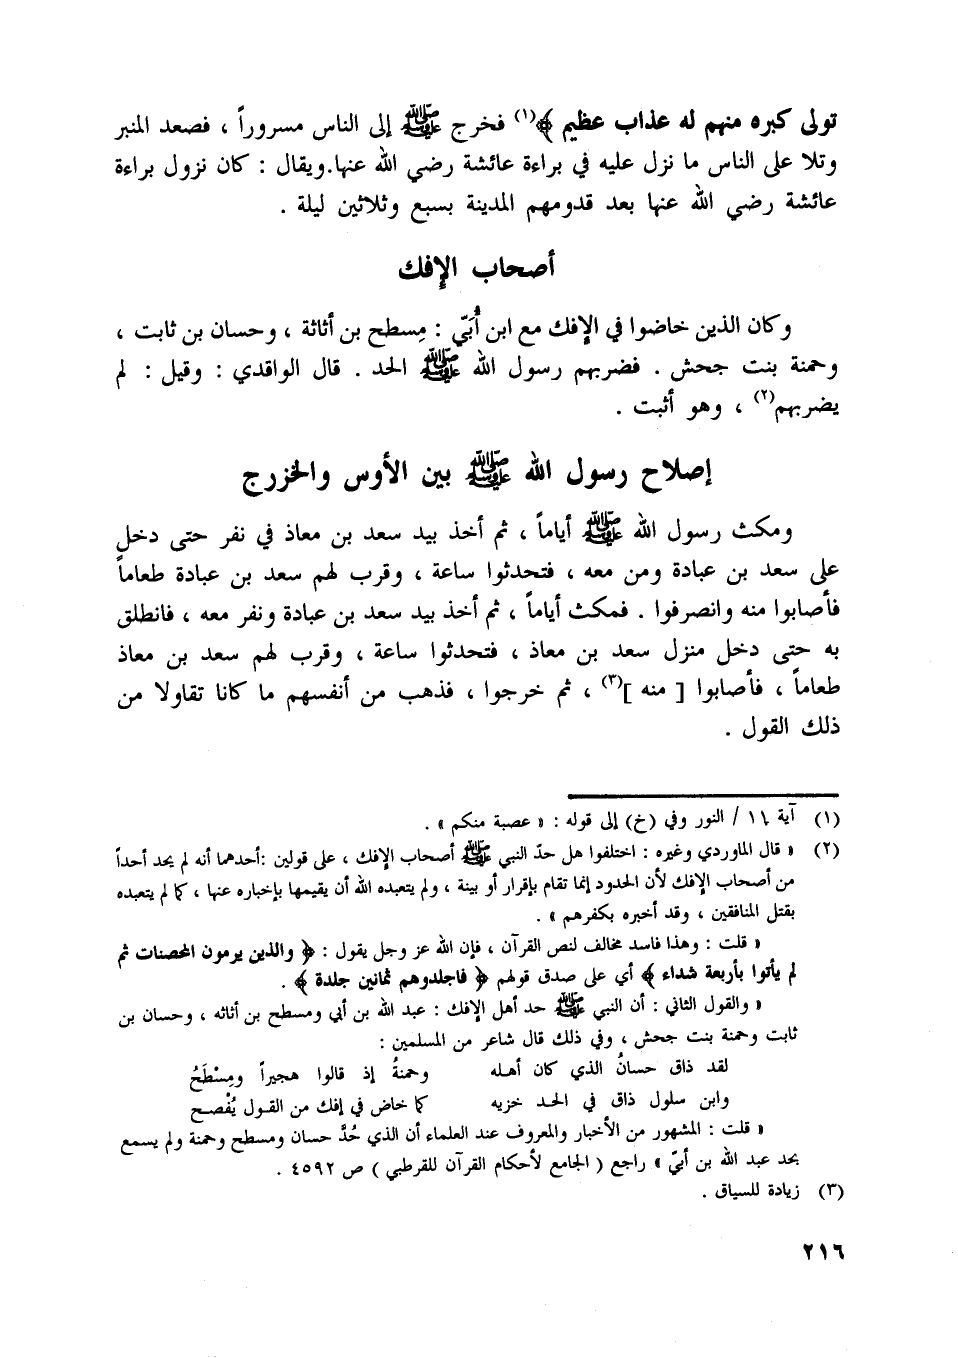 تولى كبره منهم له عذاب عظيم ﴾(١) فخرج ﷺ إلى الناس مسروراً ، فصعد المنبر
وتلا على الناس ما نزل عليه في براءة عائشة رضي الله عنها.ويقال : كان نزول براءة
عائشة رضي الله عنها بعد قدومهم المدينة بسبع وثلاثين ليلة .
أصحاب الإفك
وكان الذين خاضوا في الإفك مع ابن أُبَيّ : مِسطح بن أثاثة ، وحسان بن ثابت ،
وحمنة بنت جحش . فضربهم رسول الله ﷺ الحد . قال الواقدي : وقيل : لم
يضربهم(٢) ، وهو أثبت .
إصلاح رسول الله ﷺ بين الأوس والخزرج
ومكث رسول الله ﷺ أياماً ، ثم أخذ بيد سعد بن معاذ في نفر حتى دخل
على سعد بن عبادة ومن معه ، فتحدثوا ساعة ، وقرب لهم سعد بن عبادة طعاماً
فأصابوا منه وانصرفوا . فمكث أياماً ، ثم أخذ بيد سعد بن عبادة ونفر معه ، فانطلق
به حتى دخل منزل سعد بن معاذ ، فتحدثوا ساعة ، وقرب لهم سعد بن معاذ
طعاماً ، فأصابوا [ منه ](٣) ، ثم خرجوا ، فذهب من أنفسهم ما كانا تقاولا من
ذلك القول .
(١) آية ١١ / النور وفي (خ) إلى قوله : « عصبة منكم » .
(٢) « قال الماوردي وغيره : اختلفوا هل حدّ النبي ﷺ أصحاب الإفك ، على قولين :أحدهما أنه لم يحد أحداً
من أصحاب الإفك لأن الحدود إنما تقام بإقرار أو بينة ، ولم يتعبده الله أن يقيمها بإخباره عنها ، كما لم يتعبده
بقتل المنافقين ، وقد أخبره بكفرهم » .
« قلت : وهذا فاسد مخالف لنص القرآن ، فإن الله عز وجل يقول : ﴿ والذين يرمون المحصنات ثم
لم يأتوا بأربعة شداء ﴾ أي على صدق قولهم ﴿ فاجلدوهم ثمانين جلدة ﴾ .
« والقول الثاني : أن النبي ﷺ حد أهل الإفك : عبد الله بن أبي ومسطح بن أثاثه ، وحسان بن
ثابت وحمنة بنت جحش ، وفي ذلك قال شاعر من المسلمين :
لقد ذاق حسانُ الذي كان أهله وحمنةُ إذ قالوا هجيراً ومِسْطَحُ
وابن سلول ذاق في الحد خزيه كما خاض في إفك من القول يُفْصح
« قلت : المشهور من الأخبار والمعروف عند العلماء أن الذي حُدَّ حسان ومسطح وحمنة ولم يسمع
بحد عبد الله بن أبيّ » راجع ( الجامع لأحكام القرآن للقرطبي ) ص ٤٥٩٢ .
(٣) زيادة للسياق .
٢١٦